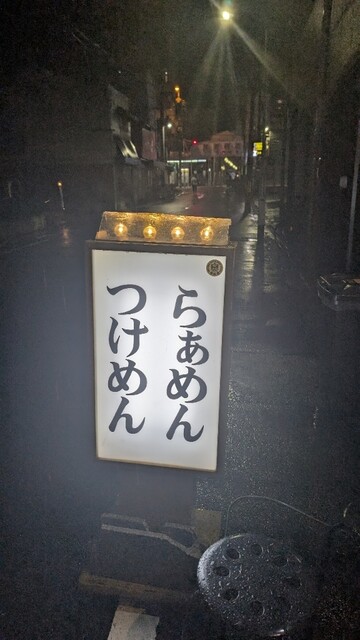 らぁめん
つけめん